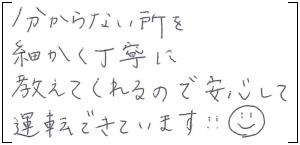 1分からない所を
細かく丁寧に
教えてくれるので安心して
運転できています!!